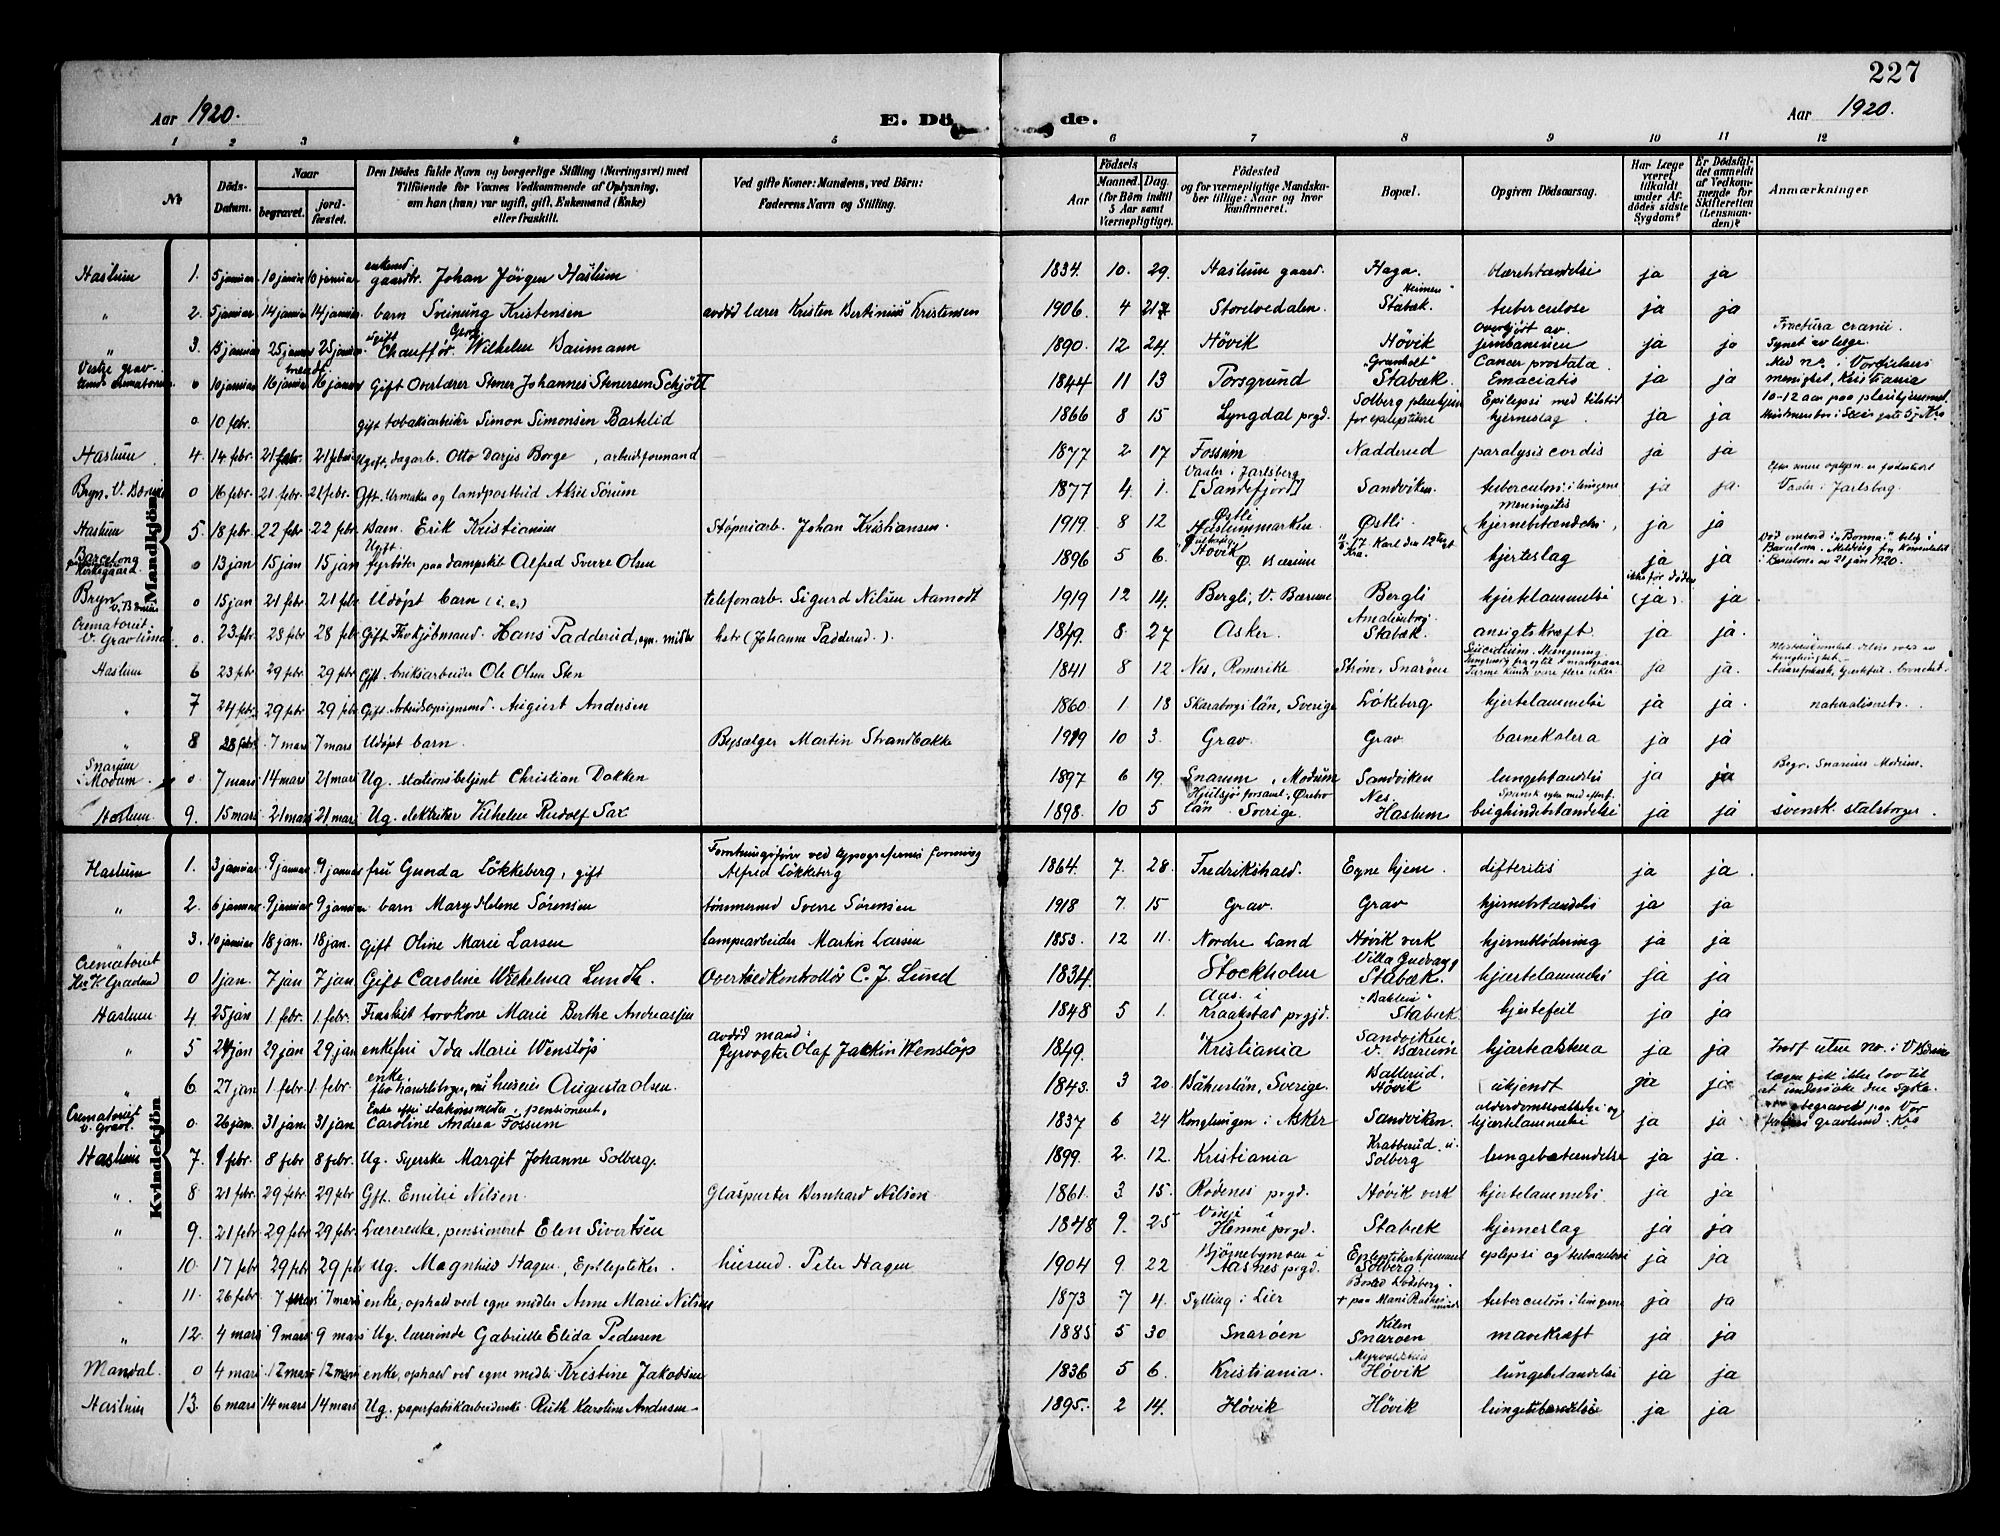 227
Aar 1920. E. Dö de. Aar 1920.
1 2 3 4 5 6 7 8 9 10 11 12
№ Döds-Datum. Naar begravet. jord-fæstet. Den Dödes fulde Navn og borgerlige Stilling (Næringsvei) med Tilföiende for Voxnes Vedkommende af Oplysning, om han (hun) var ugift, gift, Enkemand (Enke) eller fraskilt. Ved gifte Koner: Mandens, ved Börn: Faderens Navn og Stilling. Födsels Aar Maaned. Dag. (for Börn indtil 5 Aar samt Værnepligtige). Födested og for værnepligtige Mandskaber tillige: Naar og hvor konfirmeret. Bopæl. Opgiven Dödsaarsag. Har Læge været tilkaldt under Afdödes sidste Sygdom? Er Dödsfaldet anmeldt af Vedkommende for Skifteretten (Lensmanden)? Anmærkninger
Mandkjön
Haslum 1. 5 januar 10 januar 10 januar enkemd gaardbr. Johan Jörgen Haslum 1834. 10. 29. Haslum gaard. Haga. blærebetændelse ja ja
" 2. 5 januar 14 januar 14 januar barn Sveinung Kristensen avdöd lærer Kristen Bertinius Kristensen 1906 4 Storelvedalen. Stabæk. tuberculose ja ja
" 3. 25 januar 25 januar. ugift Chauffør. Wilhelm Baumann 1890 12 24. Hövik Hövik Overkjørt av ja Fractura cranii Synet av læge.
Vestre grav- 0 10 januar 16 januar 16 januar Gift Overlærer Stener Johannes Stenersen Schjött 1844 11 13 Porsgrund "Granholt" Stabæk. Cancer prostata Emaciatis ja ja menighet, Kristiania
0 10 febr. gift tobaksarbeider Simon Simonsen Barstelid 1866 8 15 Lyngdal prgd. Solberg pleiehjem for epileptikere Epilepsi med tilstöd hjerneslag ja ja
Haslum. 4. 14 febr. 21 febr. Ugift. dagarb. Otto Borge, arbeidformand 1877 2 17 Fossum Nadderud paralysis cordis ja ja
Bryn. V. Bærum 0 16 febr. 21 febr. 21 febr. Gift. Urmaker og landpostbud Aksel Sörum 1877 4. 1. Vaaler i Jarlsberg [Sandefjord] Sandviken. tuberculosi i lungene ja ja. Vaaler i Jarlsberg.
Haslum 5. 18 febr. 22 febr. 22 febr. Barn. Erik Kristiansen Støperiarb. Johan Kristiansen. 1919. 8 12 Østli Haslummarken Østli. meningitis (hjernebetændelse ja ja
Barcelona 0 13 jan 15 jan 15 jan Ugift. fyrböter paa dampskib Alfred Sverre Olsen 1896 5 6. Hövik Ø. Bærum hjerteslag ja ja Barcelona av 21 jan 1920.
Bryn V. Bærum 0 15 jan 21 febr 21 febr Udöpt barn telefonarb. Sigurd Nilsen Aamodt 1919 12 14. Bergli, V. Bærum Bergli hjertelammelse ikke för döden (ja). ja
Crematoriet V. Gravlund 0. 23 febr. 28 febr 28 febr. Gift Fhv kjöbmand. Hans Padderud, egne midler (Johanne Padderud.). 1849. 8. 27 Asker. Stabæk. ansigtskræft ja ja.
Haslum 6 23 febr 29 febr 29 febr. Gift. bruksarbeider Ole Olsen Sten 1841 8 12 Nes, Romerike Snaröen ja ja.
" 7 24 febr. 29 febr 29 febr Gift Arbeidsopsynsmd. August Andersen 1860 1 18 Skaraborgs län, Sverige Lökeberg hjertelammelse ja ja. naturaliseret.
" 8 28 febr 7 mars 7 mars Udöpt barn. Martin Strandbakke 1919 10 3. Grav. Grav barnekolera ja ja
Snarum i Modum. 0 7 mars 14 mars 21 mars Ug. stationsbetjent Christian Dokken 1897 6 19. Snarum, Modum Sandviken lungebetændelse ja ja Begr. Snarum Modum.
Haslum 9. 15 mars 21 mars 21 mars Ug. elektriker Vilhelm Rudolf Sax 1898 10 5 Örebro län Sverige. Nes. Haslum ja ja svensk statsborger.
Kvindekjön
Haslum 1. 3 januar 9 januar 9 januar fru Gunda Lökkeberg, gift Alfred Lökkeberg 1864. 7. 28. Fredrikshald. Egne hjem. difteritis ja ja.
" 2. 6 januar 9 januar 9 januar barn Mary Helene Sörensen tömmermd Sverre Sörensen 1918 7. 15 Grav. Grav hjernebetændelse ja ja
" 3. 10 januar 18 jan. 18 jan. Gift Oline Marie Larsen lampearbeider Martin Larsen 1853. 12 11. Nordre Land Hövik verk hjerneblödning ja ja
Crematoriet 0 1 jan. 7 jan 7 jan Gift Caroline Wilhelma Lundh. C. J. Lund 1834. Stockholm Stabæk. hjertelammelse ja ja
Haslum 4 25 jan 1 febr. 1. febr. Fraskilt Marie Berthe Andreassen 1848 5 1. Aas i Kraakstad prgjd. Stabæk. hjertefeil ja ja
" 5 29 jan 29 jan enkefru Ida Marie Wenstöp avdöd mand: fyrvogter Olaf Wenstöp 1849. Kristiania Sandviken, V. Bærum hjerteastma ja ja
" 6 27 jan 1 febr 1 febr. enke Augusta Olsen. 1843. 3 20. Båhuslän, Sverige. Ballerud. Hövik ukjendt ja ja læge fik ikke lov til at undersöke den syke.
Crematoriet v. Gravl. 0 26 jan. 31 jan 31 jan Enke efter stationsmester, pensioneret, Caroline Andrea Fossum 1837 6 24 Konglungen i Asker Sandviken. hjertelammelse ja ja
Haslum 7. 8 febr 8 febr. Ug. Syerske Margit Johanne Solberg. 1899. 2 12. Kristiania Solberg lungebetændelse ja ja.
" 8 21 febr. 29 febr. 29 febr. Gft. Emilie Nilsen. Glaspuster Bernhard Nilsen 1861. 3 15. Rödenes prgd. Hövik verk hjertelammelse ja ja
" 9. 21 febr 29 febr 29 febr. Lærerenke, pensioneret Elen Sivertsen 1848 9. 25 Vinje i Hemne prgd. Stabæk hjerneslag ja ja
" 10. 17 febr 29 febr 29 febr Ug. Magnhild Hagen, Epileptiker. husmd. Peter Hagen 1904 9 22 Aasnes prgd. Solberg epilepsi og tuberculosi ja ja
" 11. 26 febr. 7 mars 7 mars enke, ophold ved egne midler Anne Marie Nilsen 1873 7 4. Sylling i Lier tuberculosi i lungene ja ja
" 12. 4 mars 9 mars 9 mars Ug. lærerinde Gabrielle Elida Pedersen 1885 5 30 Snaröen Kilen Snaröen mavekræft ja ja
Mandal. 0 4 mars 12 mars 12 mars enke, ophold ved egne midler Kristine Jakobsen 1836 5 6. Kristiania. Hövik lungebetændelse ja ja
Haslum 13. 6 mars 14 mars 14 mars Ug. papirfabrikarbeiderske Ruth Karoline Andersen 1895. 2 14. Hövik Hövik lungetuberculose ja ja